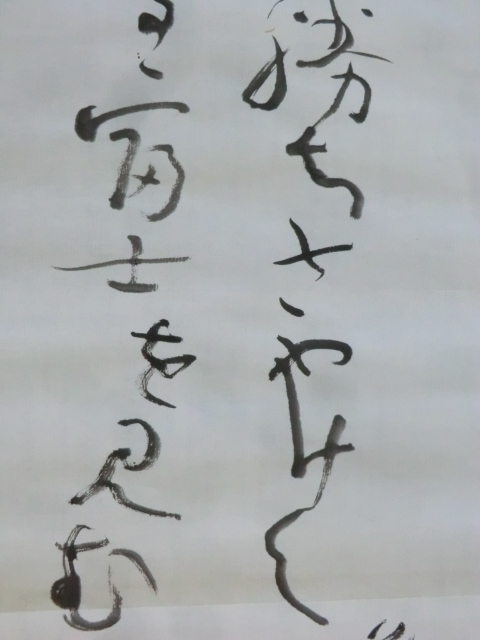 勝ちさやけく
富士を見む